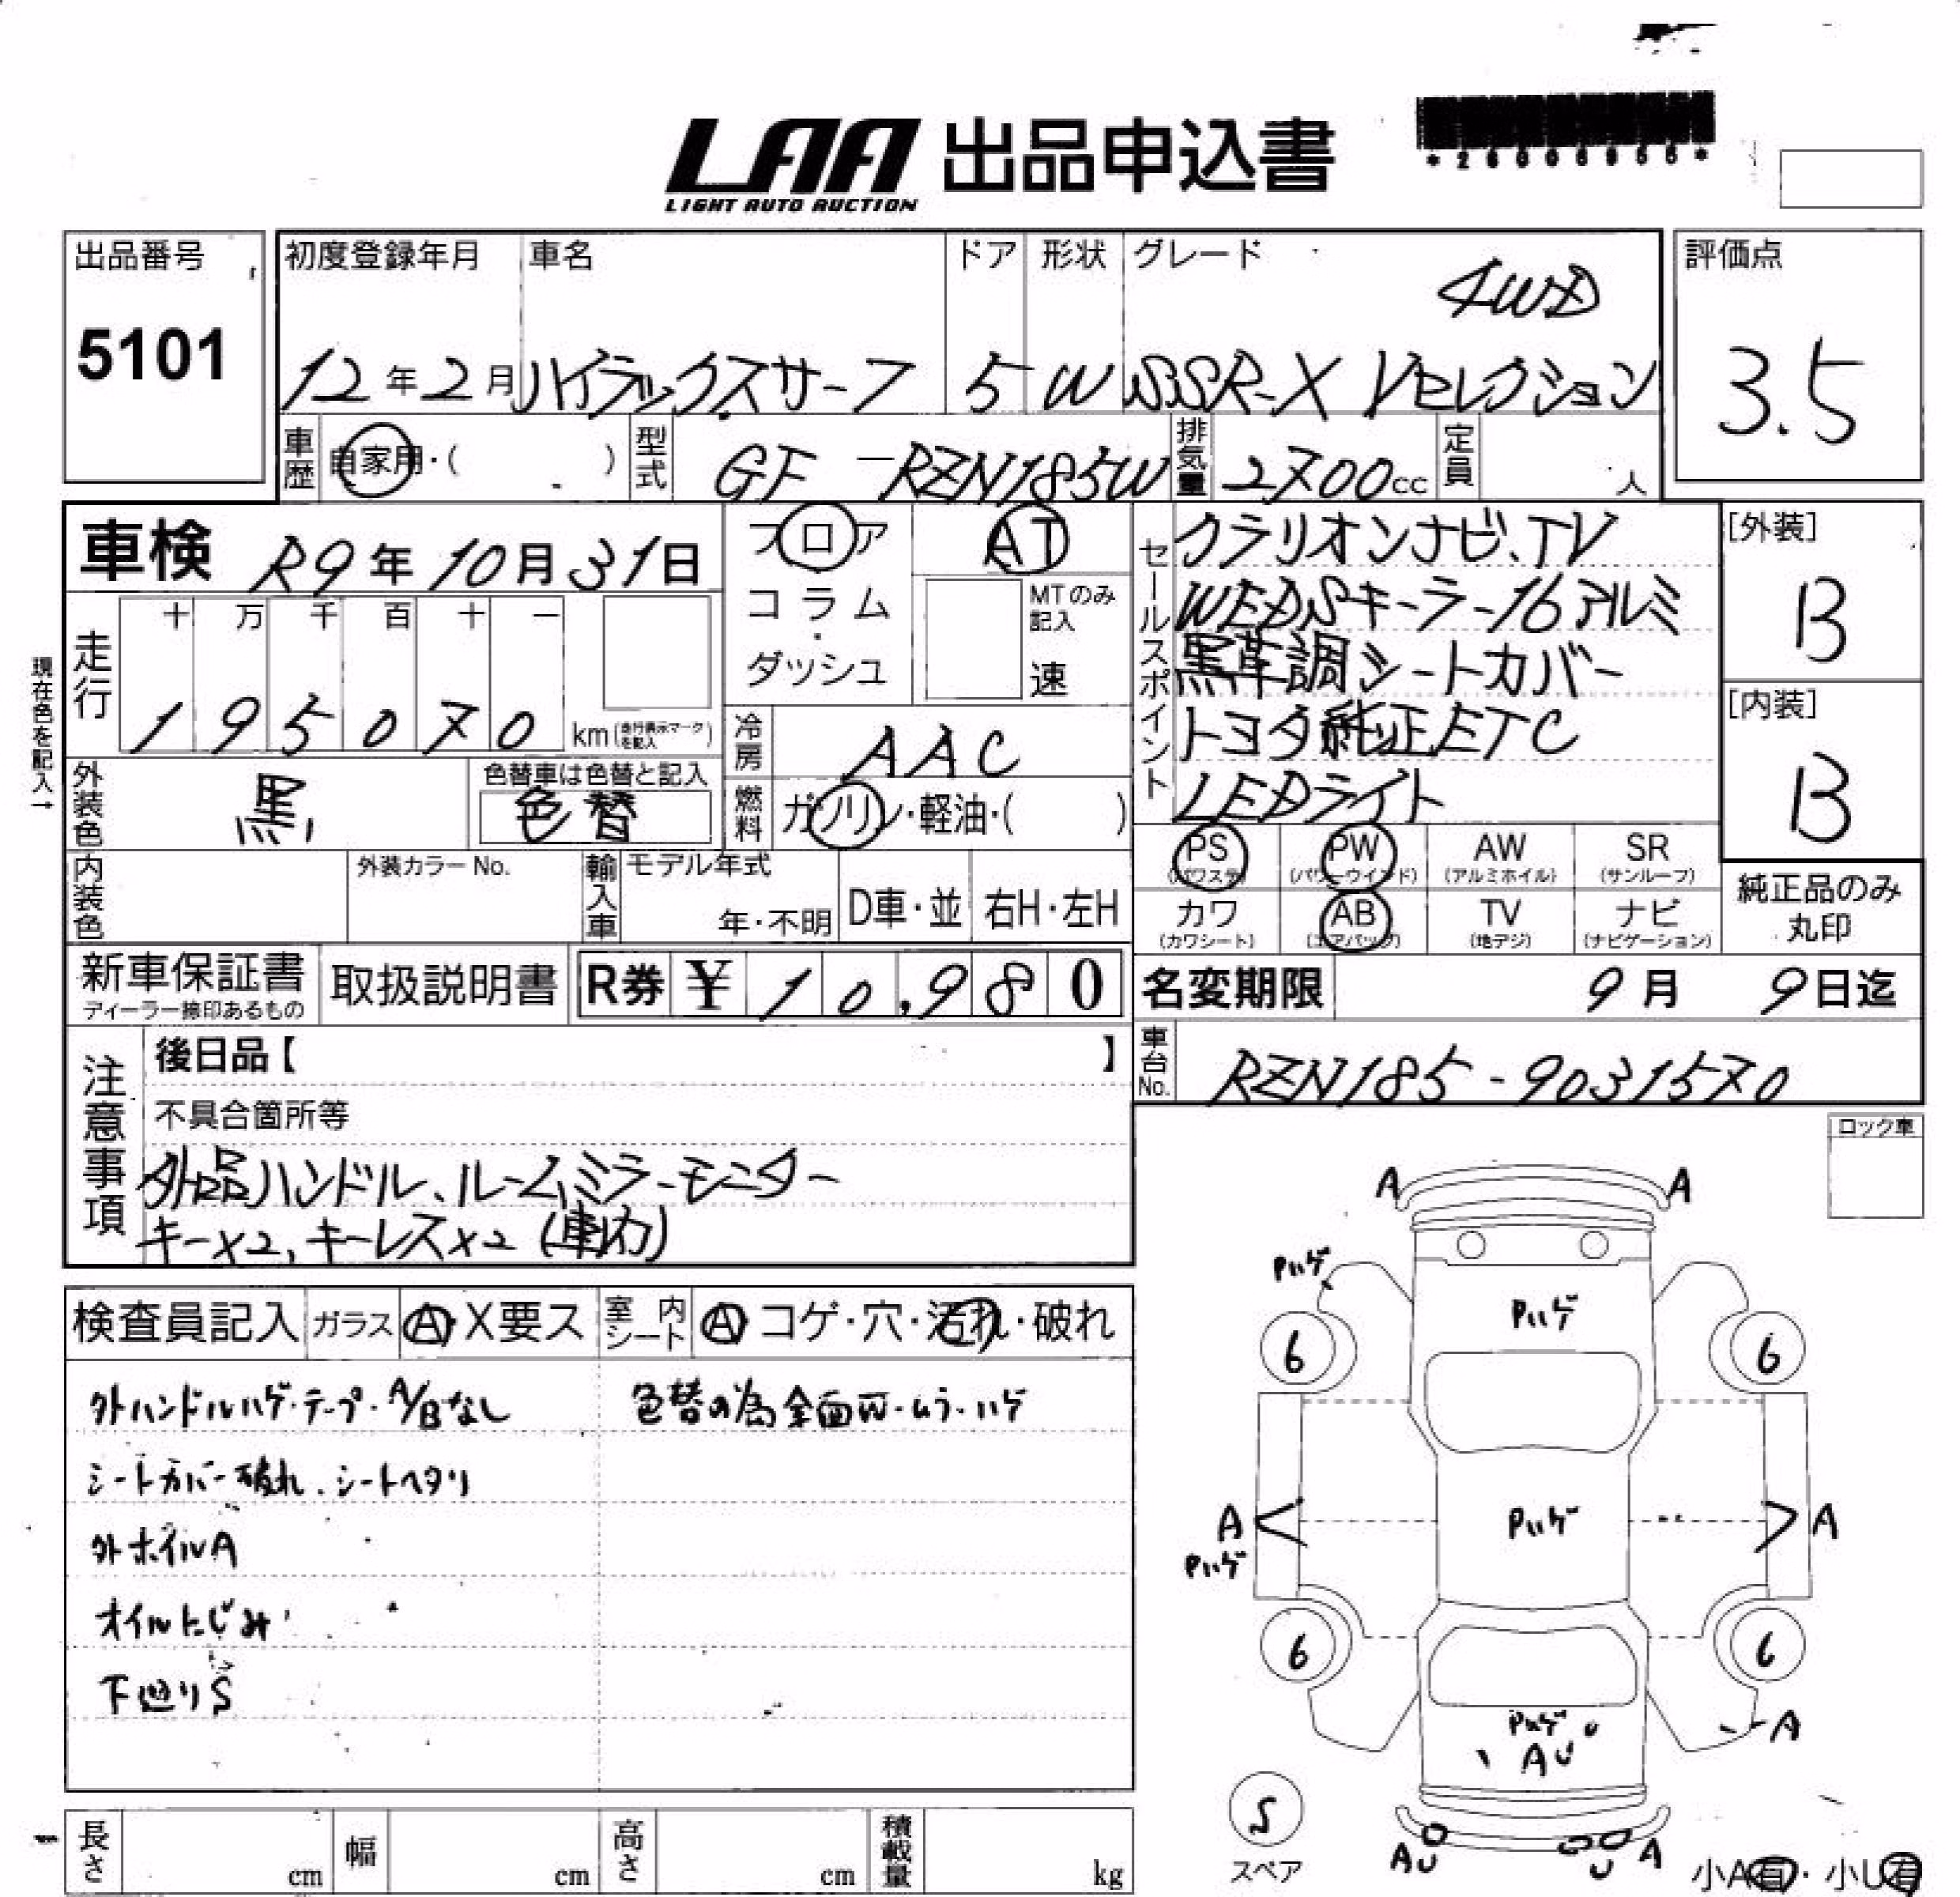 LAA 出品申込書
LIGHT AUTO AUCTION
出品番号
5101
初度登録年月 車名 ドア 形状 グレード
4WD
12年2月 ハイラックスサーフ 5 W SSR-X Vセレクション
評価点
3.5
車歴 自家用・( ) 型式 GF-RZN185W 排気量 2700cc 定員 人
車検 R9年10月31日
フロア
コラム
・
ダッシュ
AT
MTのみ
記入
速
セールスポイント
クラリオンナビ、TV
WEDSキーラー16アルミ
黒革調シートカバー
トヨタ純正ETC
LEDライト
[外装]
B
[内装]
B
現在色を記入→
走行
十 万 千 百 十 一
1 9 5 0 7 0 km (走行表示マークを記入)
冷房 AAC
外装色 黒 色替車は色替と記入
色替
燃料 ガソリン・軽油・( )
PS AW PW SR
(パワステ) (パワーウインド) (アルミホイル) (サンルーフ)
カワ AB TV ナビ
(カワシート) (エアバッグ) (地デジ) (ナビゲーション)
純正品のみ
丸印
内装色 外装カラーNo. 輸入車 モデル年式
年・不明 D車・並 右H・左H
新車保証書
ディーラー捺印あるもの
取扱説明書 R券 ¥ 10,980
名変期限 9月 9日迄
車台No. RZN185-9031570
注意事項
後日品【 】
不具合箇所等
外品ハンドル、ルームミラーモニター
キー×2、キーレス×2(車内)
ロック車
検査員記入 ガラス A・X要ス 室内シート A コゲ・穴・汚れ・破れ
外ハンドルハゲ・テープ・A/Bなし
色替の為全面W・ムラ・ハゲ
シートカバー破れ、シートヘタリ
外ホイルA
オイルにじみ
下廻りS
A A
Pハゲ
Pハゲ
6 6
A Pハゲ A
Pハゲ
6 6
Pハゲ
AU
A
S
スペア
AU U A
小A有・小U有
長さ cm 幅 cm 高さ cm 積載量 kg